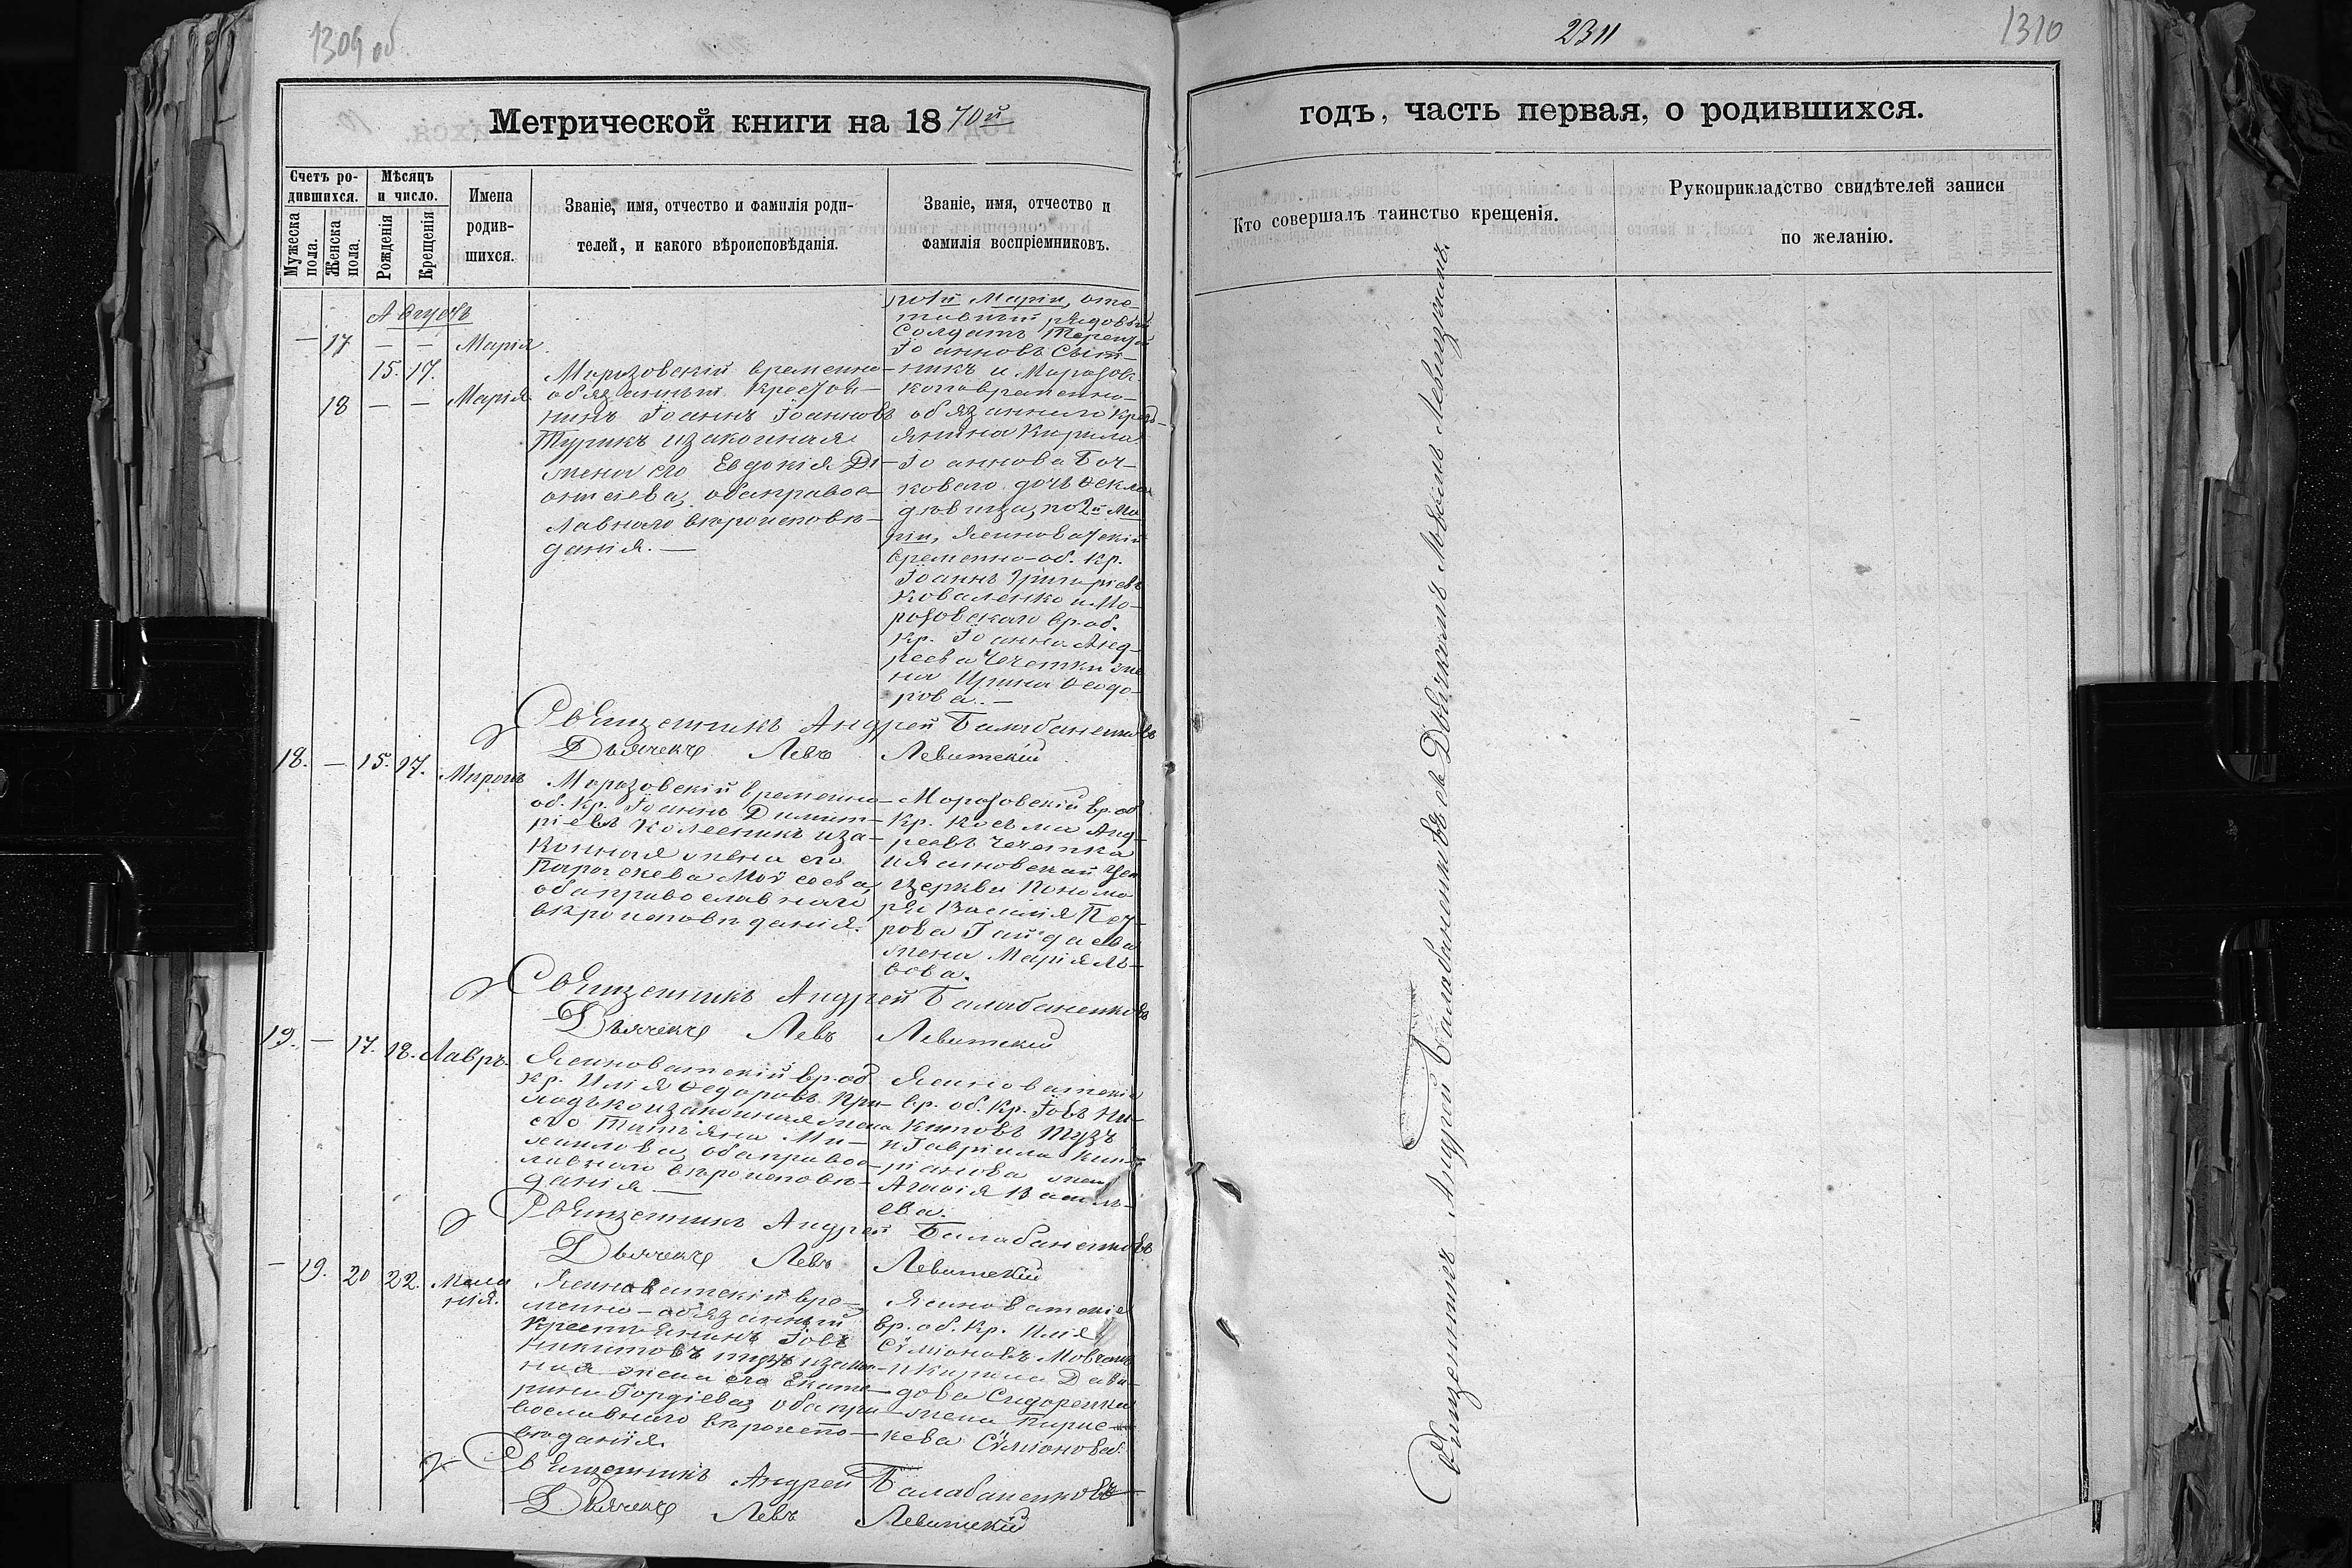 1309 об
Метрической книги на 1870й
Счетъ ро-
дившихся.
Мужеска пола.
Женска пола.
Мѣсяцъ
и число.
Рожденія
Крещенія
Имена
родив-
шихся.
Званіе, имя, отчество и фамилія роди-
телей, и какого вѣроисповѣданія.
Званіе, имя, отчество и
фамилія воспріемниковъ.
Августъ
— 17 — — Марія.
15. 17.
18 — — Марія.
Морозовскій временно-
обязанный крестья-
нинъ Іоаннъ Іоанновъ
Турикъ изаконная
жена его Евдокія
обаправос-
лавнаго вѣроисповѣ-
данія. —
по 1й Маріи, отс-
тавный рядовый
Солдатъ Терентій
Іоанновъ
никъ и Морозов-
коговременно-
обязаннаго крест-
янина Кирила
Іоаннова Боч-
коваго дочь Ѳекла
дѣвица, по 2й Ма-
ріи, Ясиноватскій
временно-об. кр.
Іоаннъ Григоріевъ
Коваленко и Мо-
розовскаго вр. об.
кр. Іоанна Анд-
реева Чечетки же-
на Ирина Ѳеодо-
рова. —
Священникъ Андрей Балабаненковъ
Дьячекъ Левъ Левитскій
18. — 15. 17. Миронъ
Морозовскій временно-
об. кр. Іоаннъ Димит-
ріевъ Колесникъ иза-
конная жена его
Параскева Моѵсеева,
обаправославнаго
вѣроисповѣданія.
Морозовскій вр. об
кр. Косьма Анд-
реевъ Чечетка
церкви Понома-
ря Василія Пет-
рова Гайдаева
жена Марія Ль-
вова.
Священникъ Андрей Балабаненковъ
Дьячекъ Левъ Левитскій
19. — 17. 18. Лавръ.
Ясиноватскій вр. об
кр. Илія Ѳедоровъ При-
ходько изаконная жена
его Татіяна Ми-
хаилова, обаправос-
лавнаго вѣроисповѣ-
данія —
Ясиноватскіе
вр. об. кр. Іовъ Ни-
китовъ Тузъ
и Гавріила Кип-
ріанова жена
Агафія Василь-
ева.
Священникъ Андрей Балабаненковъ
Дьячекъ Левъ Левитскій
— 19. 20 22. Мела
нія.
Ясиноватскій вре-
менно-обязанный
крестьянинъ Іовъ
Никитовъ Тузъ изакон-
ная жена его Екате-
рина Гордіева, обапра-
вославнаго вѣроиспо-
вѣданія.
Ясиноватскіе
вр. об. кр. Илія
Сѵміоновъ Мовчанъ
и Карпа Дави-
дова Сидоренка
жена Парас-
кева Сѵміонова.
Священникъ Андрей Балабаненковъ
Дьячекъ Левъ Левитскій
2311
1310
годъ, часть первая, о родившихся.
Кто совершалъ таинство крещенія.
Рукоприкладство свидѣтелей записи
по желанію.
Священникъ Андрей Балабаненковъ съ Дьячкомъ Львомъ Левитскимъ.